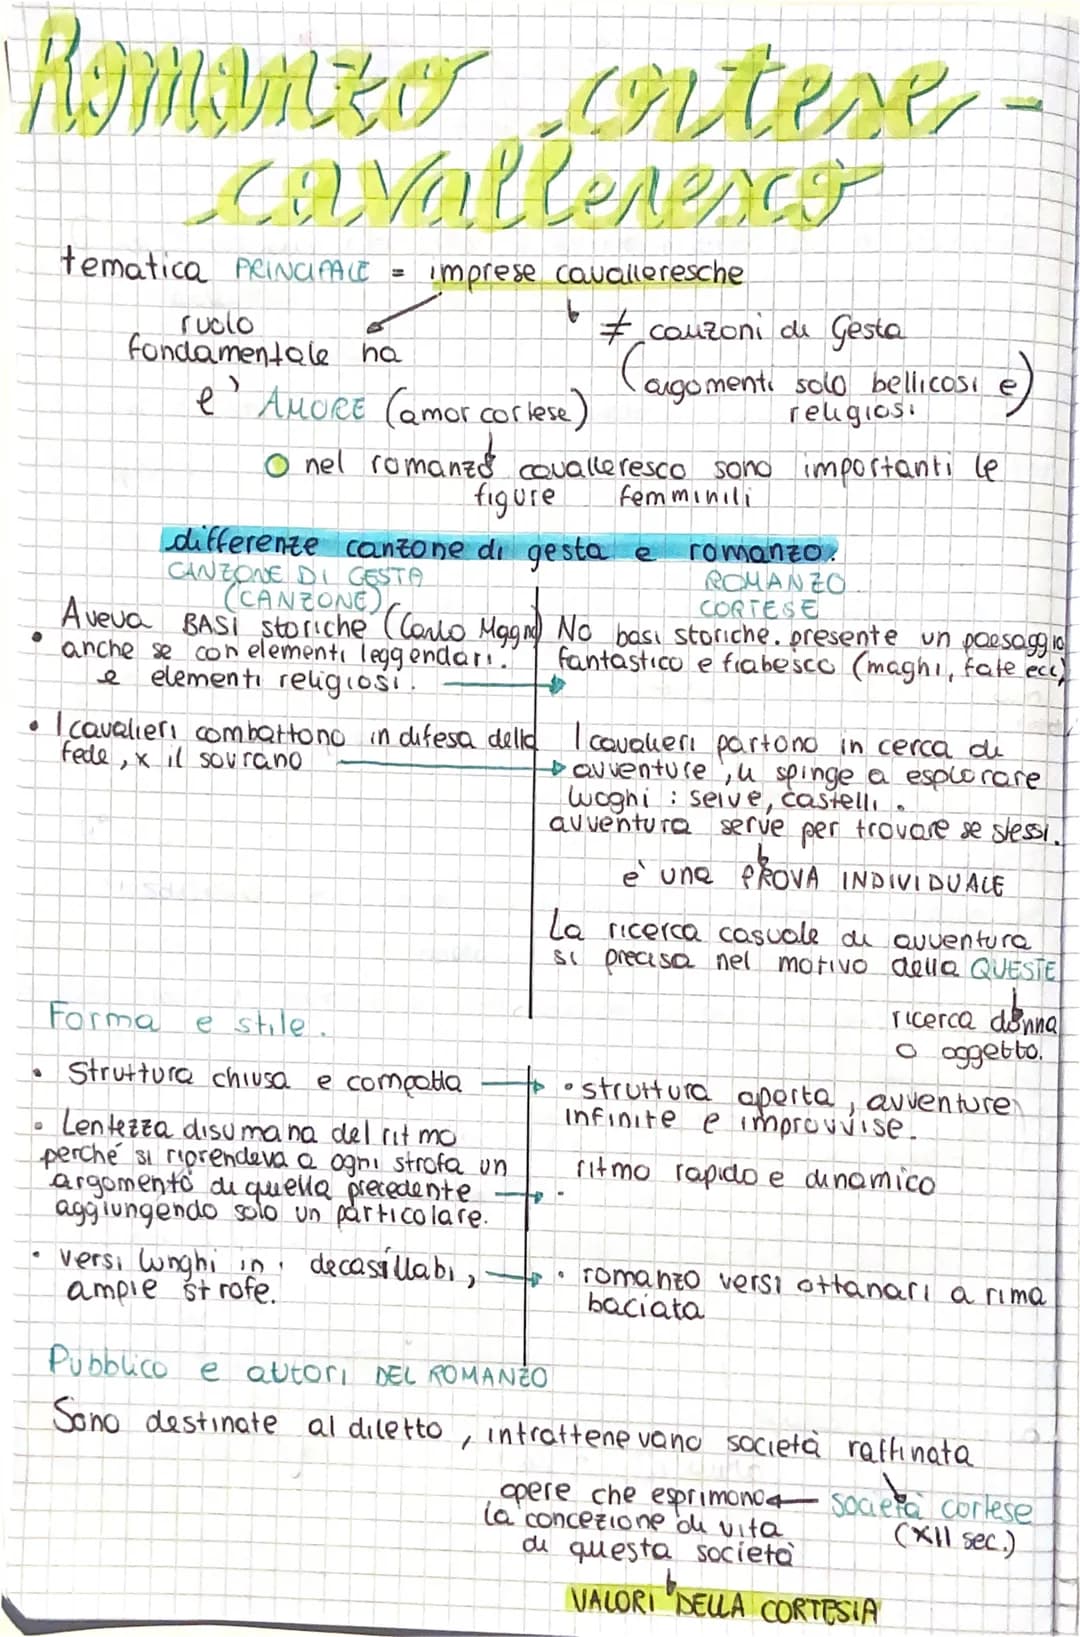 Romanzo cortese-
cavalleresco
tematica PRINCIPALE = imprese cavalleresche
ruolo
fondamentale ha
≠ canzoni di Gesta
(argomenti solo bellicosi e)
religiosi
e' AMORE (amor cortese)
nel romanzo cavalleresco sono importanti le
figure femminili
differenze canzone di gesta e romanzo.
CANZONE DI GESTA
(CANZONE)
• Aveva BASI storiche (Carlo Magno)
anche se con elementi leggendari.
e elementi religiosi.
• I cavalieri combattono in difesa della
fede, x il sovrano
ROMANZO
CORTESE
No basi storiche. presente un paesaggio
fantastico e fiabesco (maghi, fate ecc)
I cavalieri partono in cerca di
avventure, li spinge a esplorare
luoghi : selve, castelli.
avventura serve per trovare se stessi.
è una PROVA INDIVIDUALE
La ricerca casuale di avventura
si precisa nel motivo della QUESTE
ricerca donna
o oggetto.
Forma e stile.
• Struttura chiusa e compatta
• Lentezza disumana del ritmo
perché si riprendeva a ogni strofa un
argomento di quella precedente
aggiungendo solo un particolare.
• versi lunghi in decasillabi,
ampie strofe.
• struttura aperta, avventure
infinite e improvvise.
• ritmo rapido e dinamico
• romanzo versi ottanari a rima
baciata
Pubblico e autori DEL ROMANZO
Sono destinate al diletto, intrattenevano società raffinata
società cortese
(XII sec.)
opere che esprimono
la concezione di vita
di questa società
VALORI DELLA CORTESIA